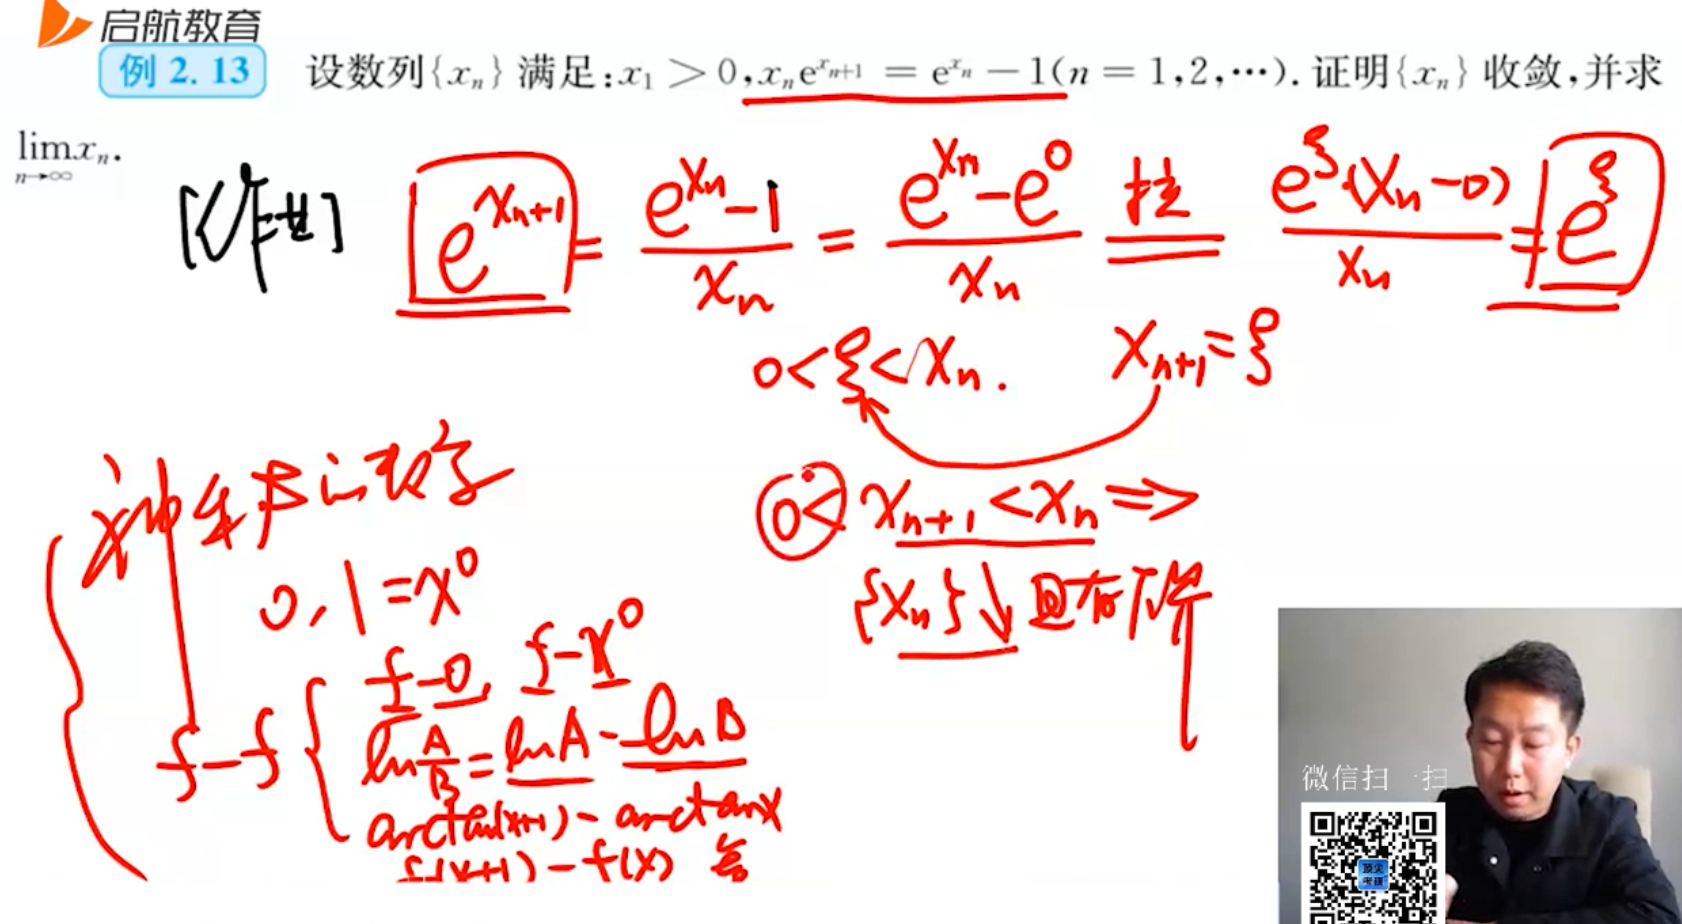 启航教育
例 2.13 设数列{xₙ}满足:x₁ > 0,xₙe^{xₙ₊₁} = e^{xₙ} − 1(n = 1,2,⋯).证明{xₙ}收敛,并求
lim xₙ.
n→∞
e^{xₙ₊₁} = (e^{xₙ} − 1)/xₙ = (e^{xₙ} − e⁰)/xₙ 拉 e^ξ·(xₙ − 0)/xₙ = e^ξ
0 < ξ < xₙ. xₙ₊₁ = ξ
0 < xₙ₊₁ < xₙ ⇒
{xₙ}↓且有下界
0, 1 = x⁰
f − 0, f − x⁰
f − f
ln A/B = ln A − ln B
arctan(x+1) − arctan x
f(x+1) − f(x) 等
微信扫一扫
顶尖
考研